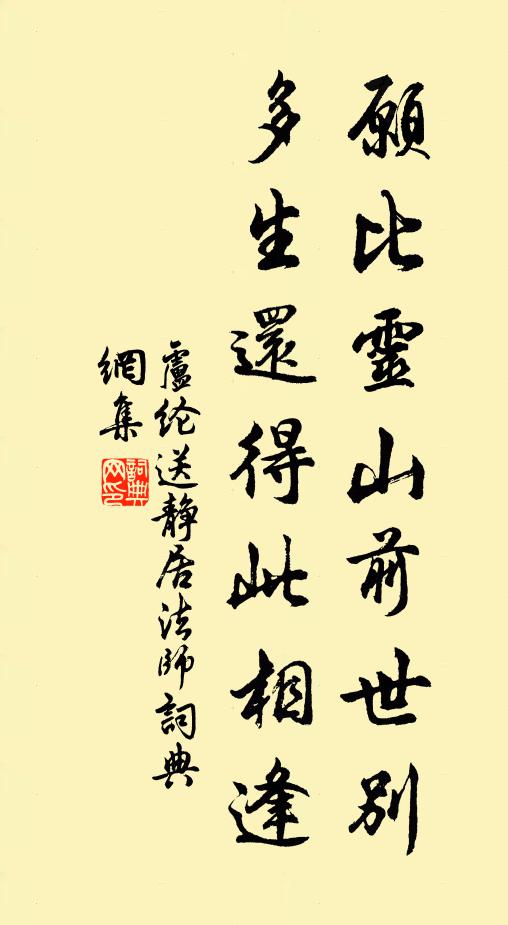 願比靈山前世別
多生還得此相逢
盧纶送靜居法師詞典
網集
詞典
网印